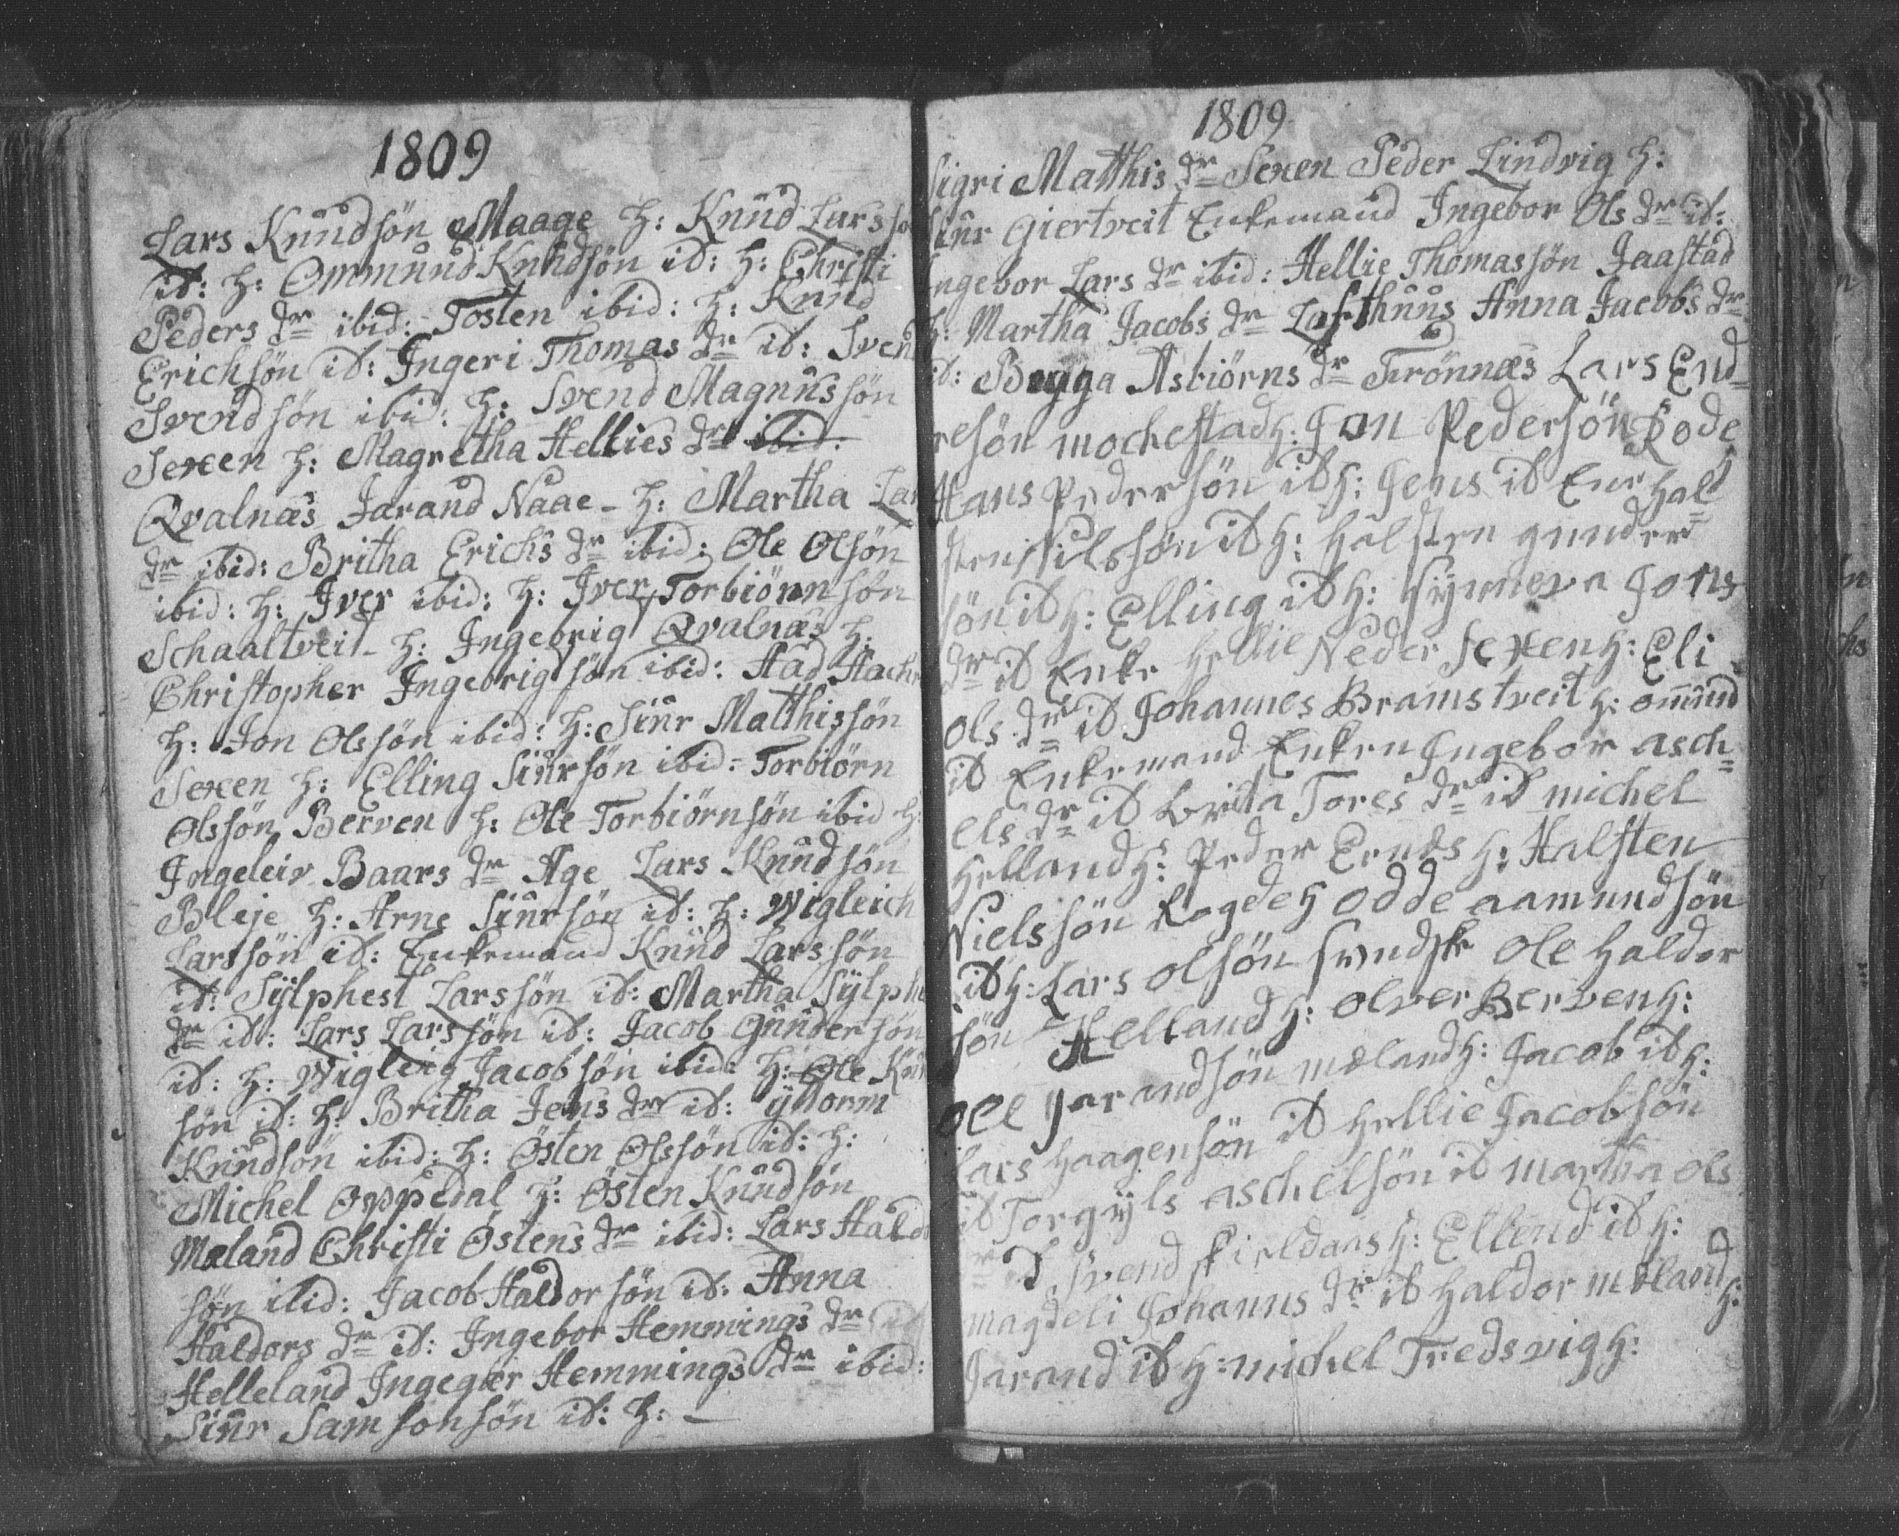 1809
Lars Knudsön Maage h: Knud Lars
id: h: Ommund Knudsön id: h: Christi
Peders dr ibid: Tosten ibid: h: Knud
Erichsön id: Ingeri Thomas dr id: Svend
Svendsön ibid: h: Svend Magnussön
Sexen h: Magretha Hellies dr ibid:
Qvalnæs Jarand Naae - h: Martha Lar
dr ibid: Britha Erichs dr ibid: Ole Olsön
ibid: h: Iver ibid: h: Iver Torbiörnsön
Schaaltveit - h: Ingebrig Qvalnæs h:
Christopher Ingebrigsön ibid: Aad
h: Jon Olssön ibid: h: Siur Matthissön
Sexen h: Elling Siursön ibid - Torbiörn
Olssön Berven h: Ole Torbiörnsön ibid h:
Ingeleiv Baars dr Age Lars Knudsön
Bleje h: Arne Siursön id: h: Wigleich
Larssön id: Enkemand Knud Larssön
id: Sylphest Larssön id: Martha Sylph
dr id: Lars Larssön id: Jacob Gundersön
id: h: Wigleng Jacobsön ibid: h: Ole Knu
sön id: h: Britha Jens dr id:
Knudsön ibid: h: Östen Olssön id: h:
Michel Oppedal h: Östen Knudsön
Mæland Christi Östens dr ibid: Lars Hald
sön ibid: Jacob Haldorsön id: Anna
Haldors dr id: Ingebor Hemmings dr id
Helleland Ingegær Hemmings dr ibid:
Siur Samsonsön id: h: -
1809
Sigri Matthis dr Sexen Peder Lindvig h:
Siur Giertveit Enkemand Ingebor Ols dr id:
Ingebor Lars dr ibid: Hellie Thomassön Jaastad
h: Martha Jacobs dr Lofthuus Anna Jacobs dr
id: Bygga Asbiörns dr Trönnæs Lars End=
resön mochestad h: Jon Pedersön Rode
Hans Pedersön id h: Jens id Enr Hal=
sten Nilssön id h: halsten gunder
sön id h: Elling id h: Synneva Jons
dr id Enke Hellie Neder sexen h: Eli
Ols dr id Johannes Bramstveit h: omund
id Enkemand Enken Ingebor asch=
els dr id brita Tores dr id michel
Helland h: Peder Ernes h: Halsten
Nielssön Rogde h odde aamundsön
id h: Lars olsön Ole haldor
sön Helland h: olver Berven h:
Ole Jarandsön mæland h: Jacob id h:
Lars haagensön id hellie Jacobsön
id Torgyls aschelsön id martha ols
dr id Svend skieldaas h: Ellend id h:
magdeli Johanns dr id haldor mæland h:
Jarand id h: michel Tredsvig h: